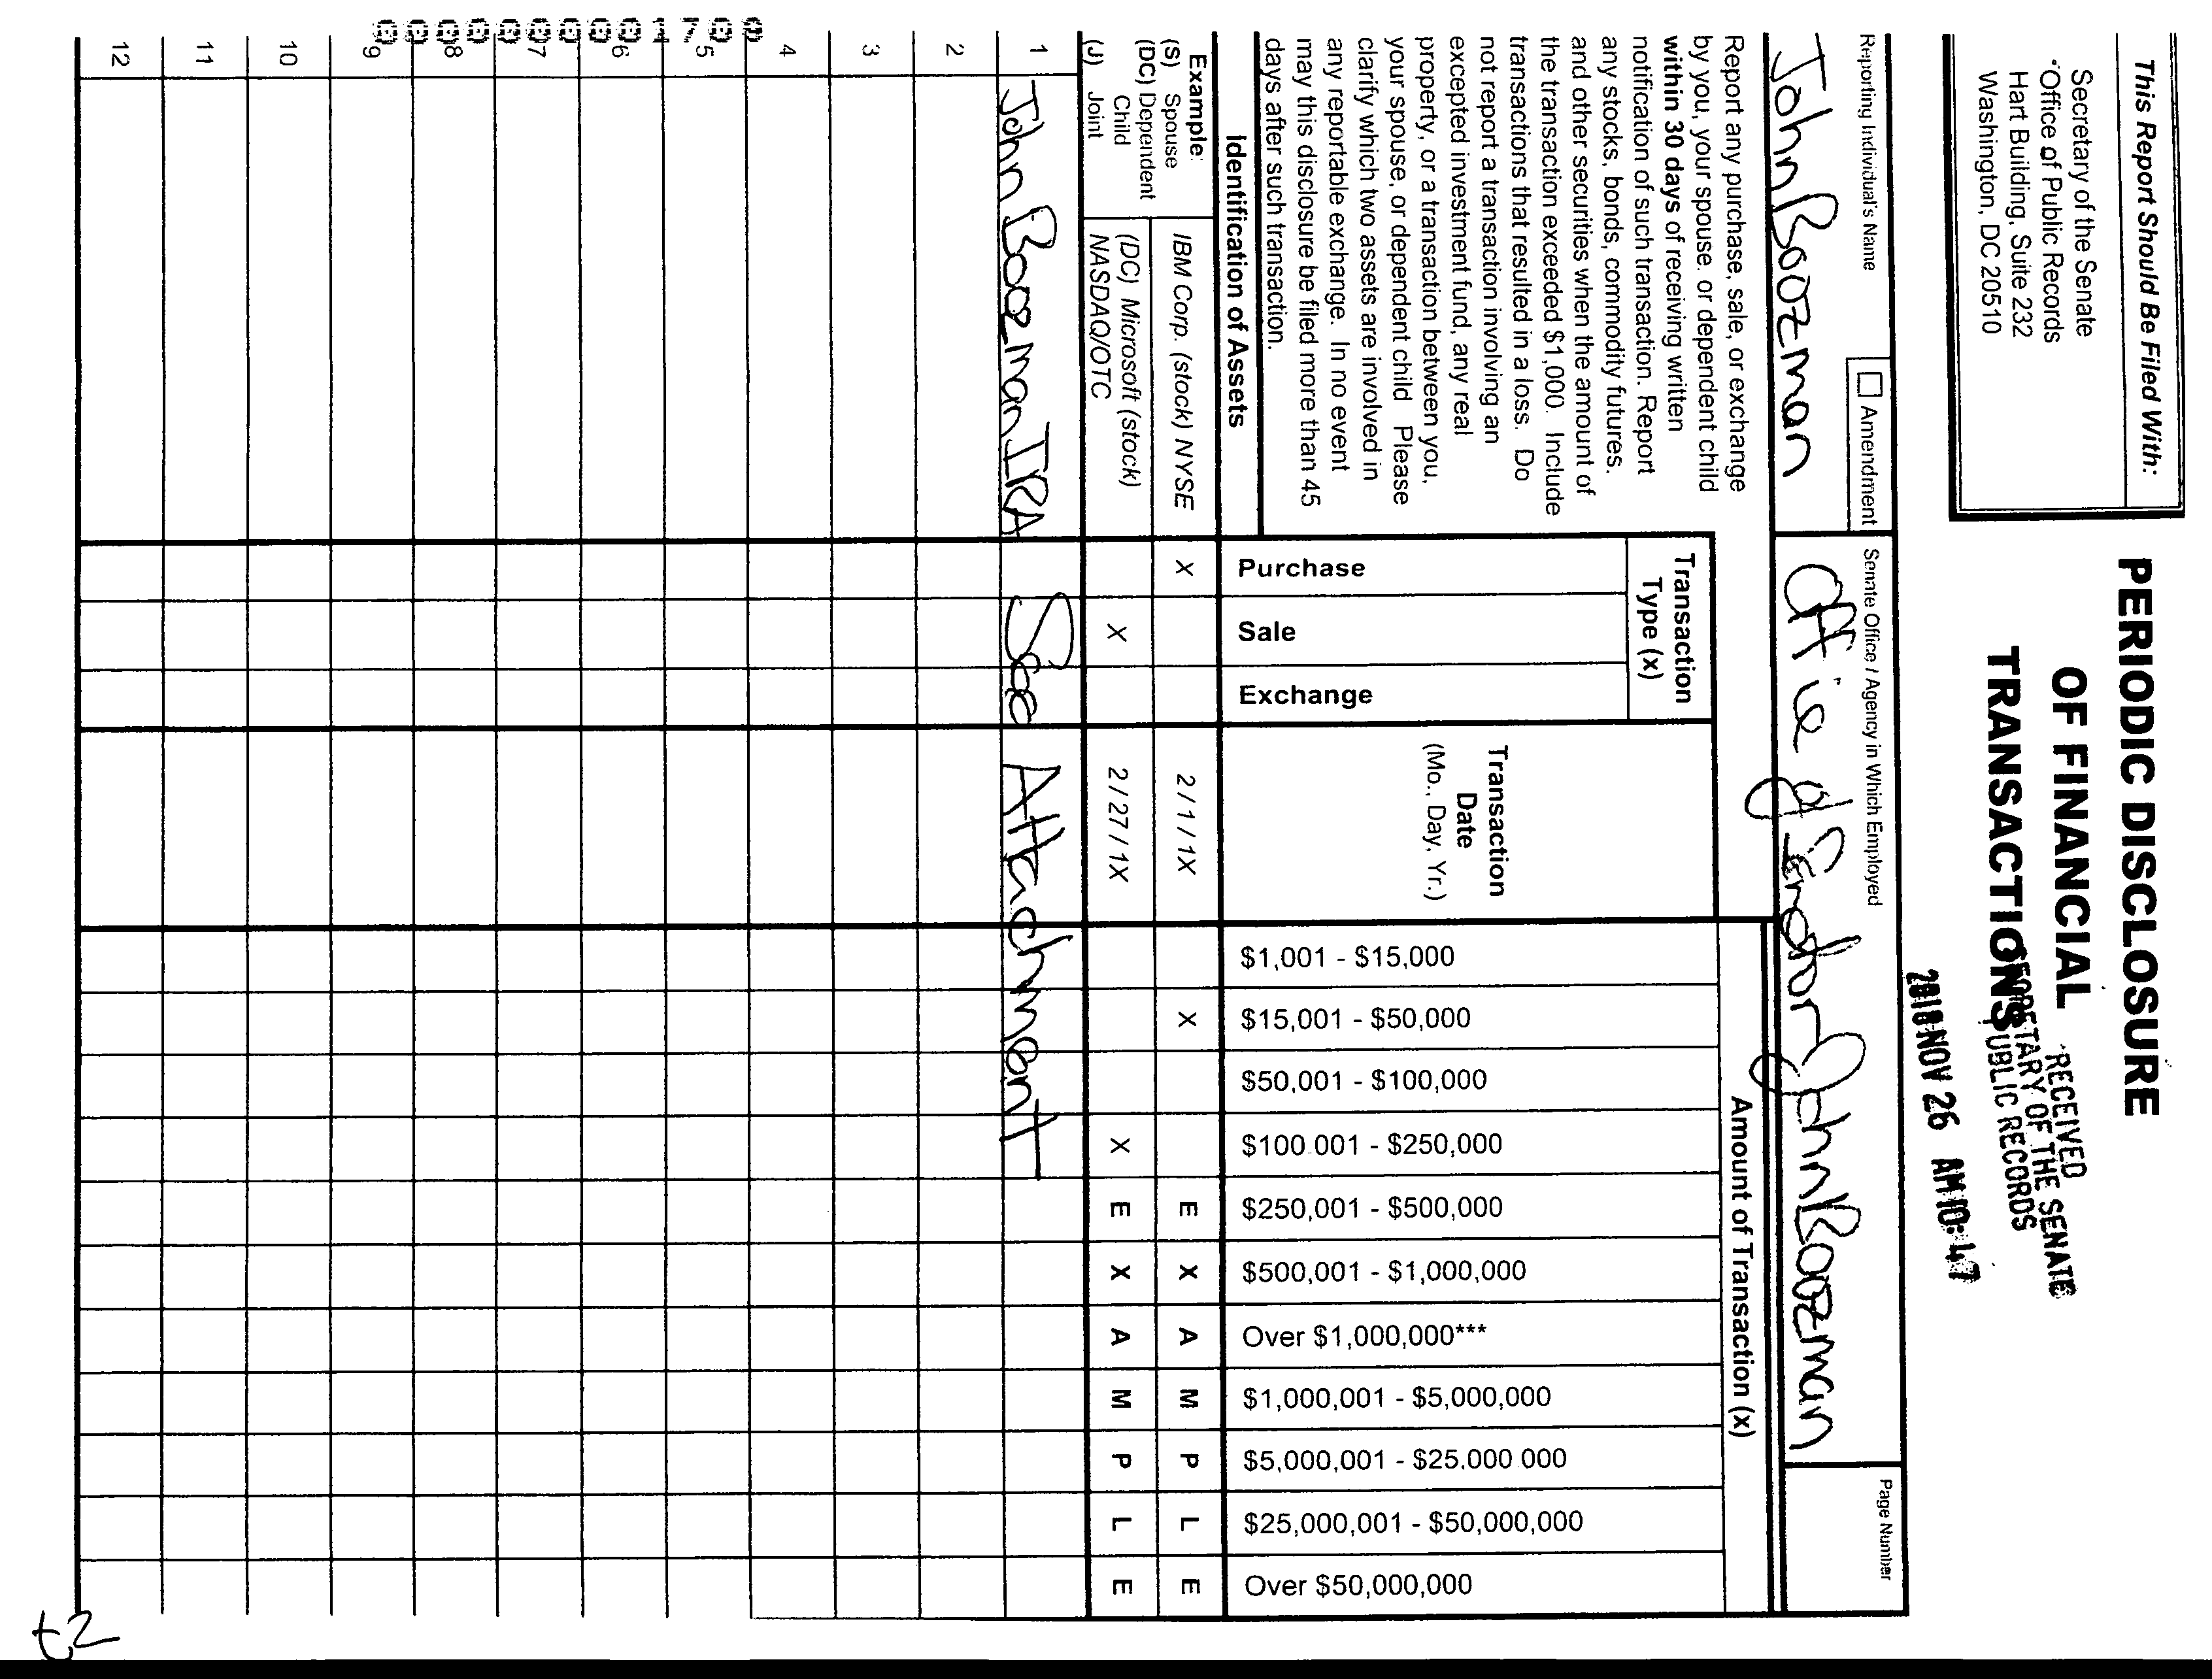 This Report Should Be Filed With:
Secretary of the Senate
Office of Public Records
Hart Building, Suite 232
Washington, DC 20510
PERIODIC DISCLOSURE
OF FINANCIAL
TRANSACTIONS
RECEIVED
SECRETARY OF THE SENATE
PUBLIC RECORDS
2018 NOV 26 AM 10:47
Reporting Individual's Name
Amendment
Senate Office / Agency in Which Employed
Page Number
John Boozman
Office of Senator John Boozman
Report any purchase, sale, or exchange
by you, your spouse, or dependent child
within 30 days of receiving written
notification of such transaction. Report
any stocks, bonds, commodity futures.
and other securities when the amount of
the transaction exceeded $1,000. Include
transactions that resulted in a loss. Do
not report a transaction involving an
excepted investment fund, any real
property, or a transaction between you,
your spouse, or dependent child Please
clarify which two assets are involved in
any reportable exchange. In no event
may this disclosure be filed more than 45
days after such transaction.
Transaction
Type (x)
Purchase
Sale
Exchange
Transaction
Date
(Mo., Day, Yr.)
Amount of Transaction (x)
$1,001 - $15,000
$15,001 - $50,000
$50,001 - $100,000
$100.001 - $250,000
$250,001 - $500,000
$500,001 - $1,000,000
Over $1,000,000***
$1,000,001 - $5,000,000
$5,000,001 - $25,000.000
$25,000,001 - $50,000,000
Over $50,000,000
Identification of Assets
Example:
(S) Spouse
(DC) Dependent
Child
(J) Joint
IBM Corp. (stock) NYSE X 2/1/1X X E X A M P L E
(DC) Microsoft (stock)
NASDAQ/OTC X 2/27/1X X E X A M P L E
1 John Boozman IRA See Attachment
2
3
4
5
6
7
8
9
10
11
12
000000001700
t2